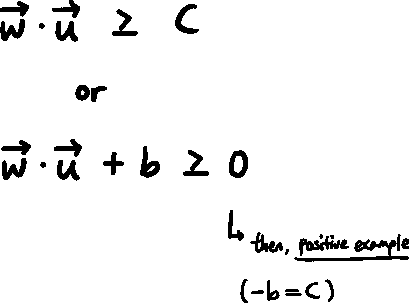 $\vec{w} \cdot \vec{u} \geq C$
or
$\vec{w} \cdot \vec{u} + b \geq 0$
↳ then, positive example
(-b = C)